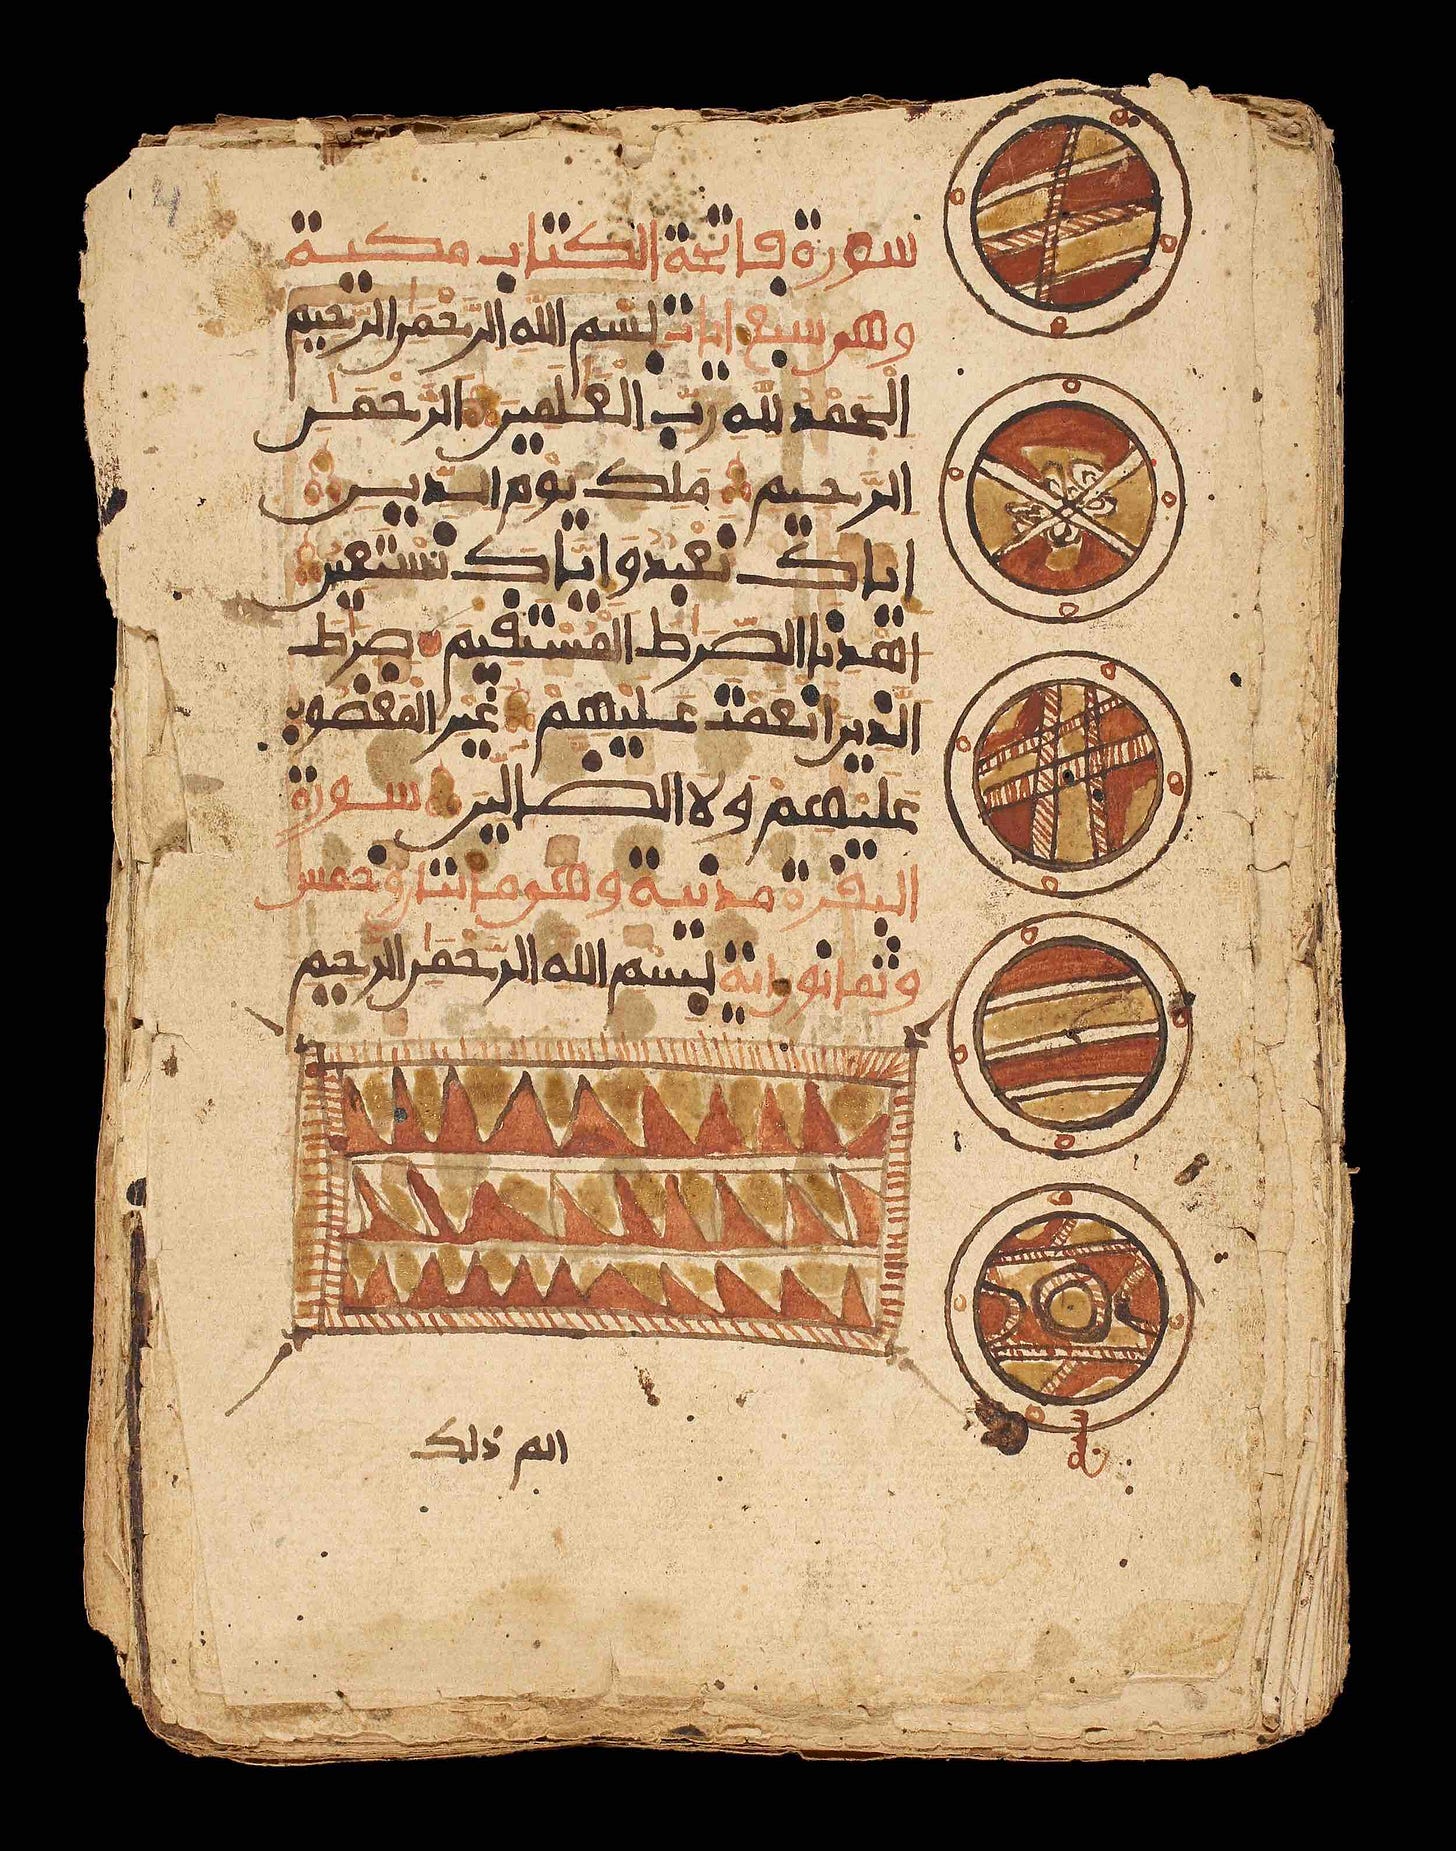 4
سورة فاتحة الكتاب مكية
وهي سبع ايات بِسْمِ اللهِ الرَّحْمَٰنِ الرَّحِيمِ
الْحَمْدُ لِلَّهِ رَبِّ الْعَٰلَمِينَ الرَّحْمَٰنِ
الرَّحِيمِ مَلِكِ يَوْمِ الدِّينِ
إِيَّاكَ نَعْبُدُ وَإِيَّاكَ نَسْتَعِينُ
اهْدِنَا الصِّرَٰطَ الْمُسْتَقِيمَ صِرَٰطَ
الَّذِينَ أَنْعَمْتَ عَلَيْهِمْ غَيْرِ الْمَغْضُوبِ
عَلَيْهِمْ وَلَا الضَّالِّينَ سورة
البقرة مدنية وهي مائتان وخمس
وثمانون اية بِسْمِ اللهِ الرَّحْمَٰنِ الرَّحِيمِ
الم ذلك